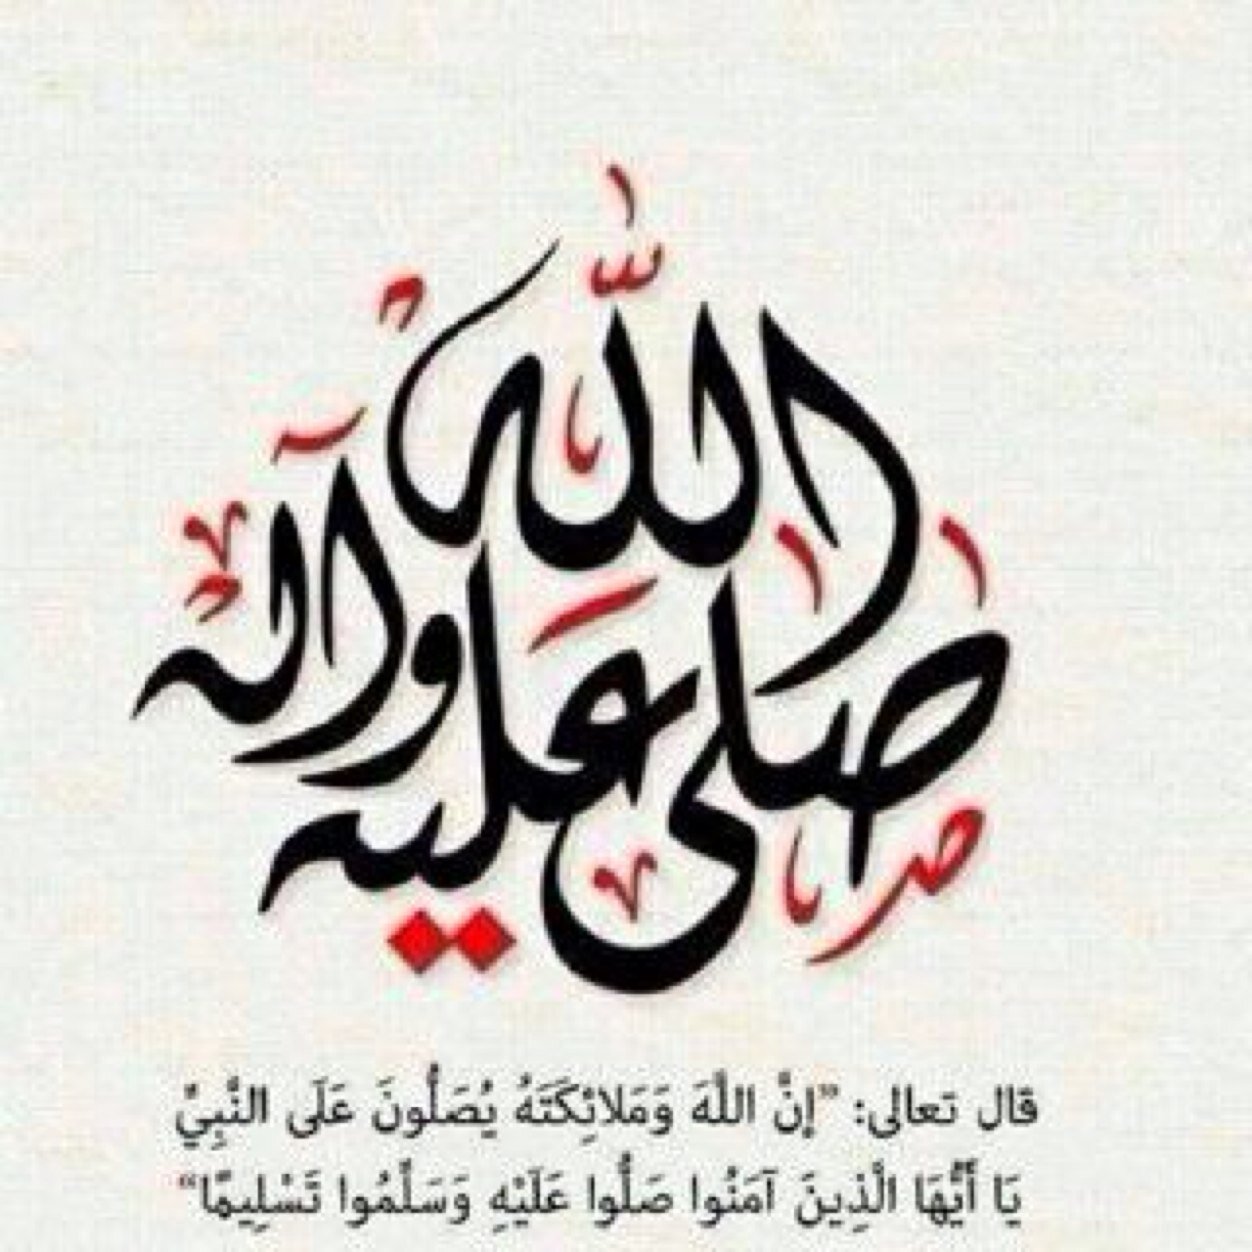 صلى الله عليه وآله
قال تعالى: ”إِنَّ اللَّهَ وَمَلائِكَتَهُ يُصَلُّونَ عَلَى النَّبِيِّ
يَا أَيُّهَا الَّذِينَ آمَنُوا صَلُّوا عَلَيْهِ وَسَلِّمُوا تَسْلِيمًا“